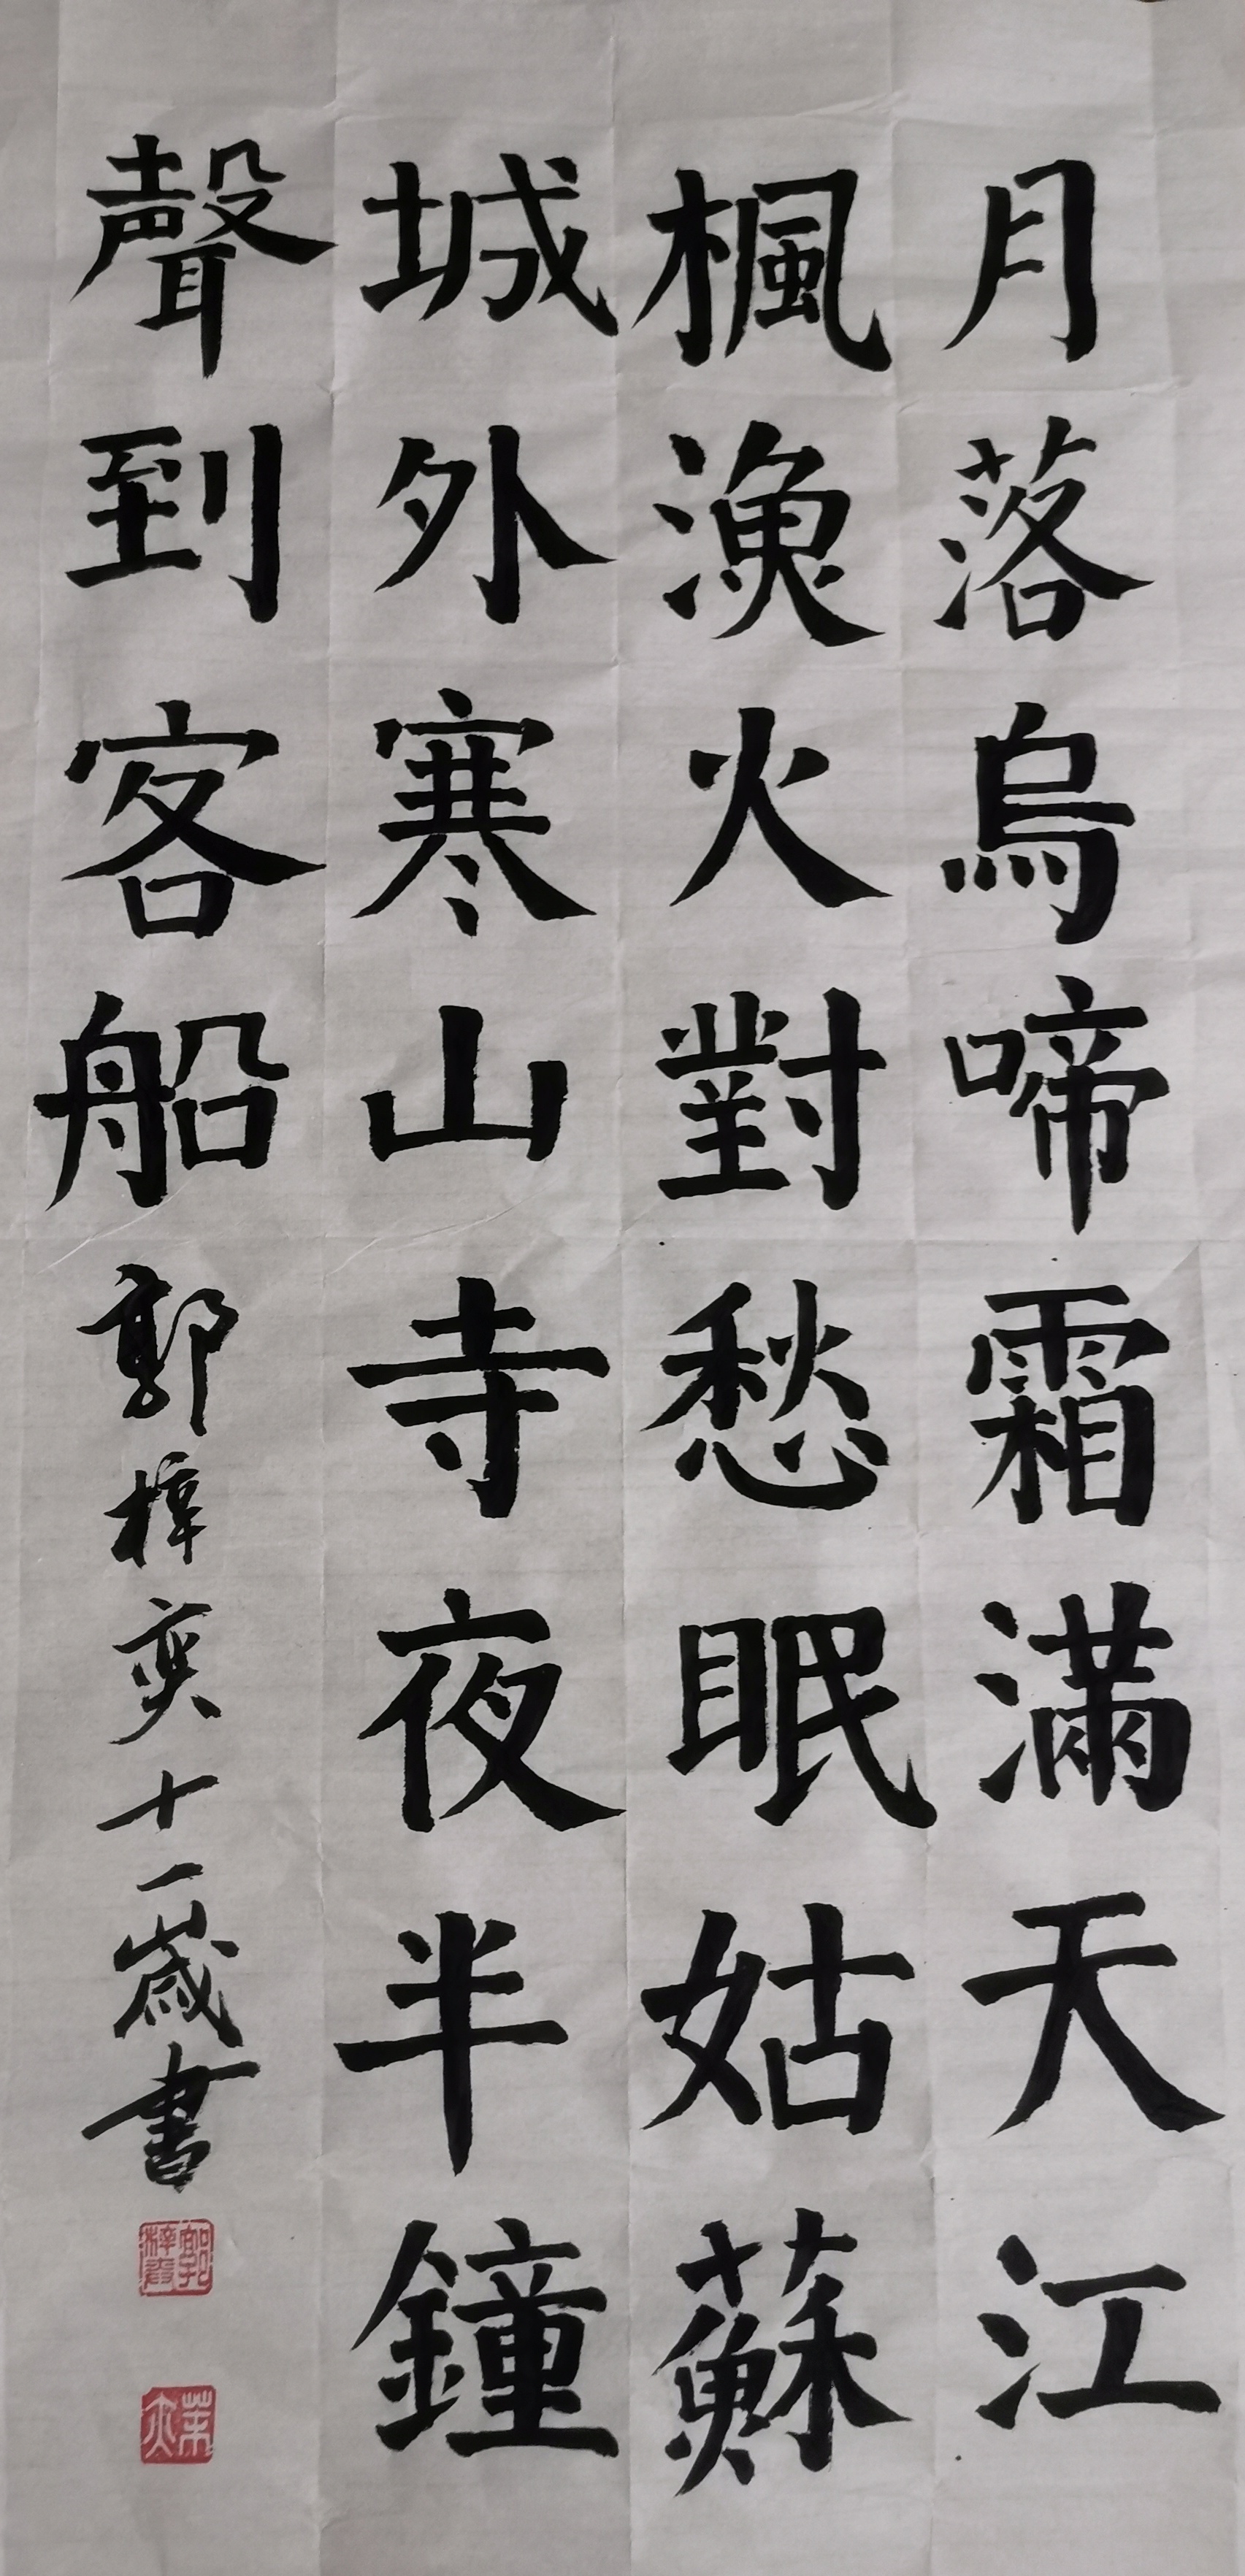 月落烏啼霜滿天江
楓漁火對愁眠姑蘇
城外寒山寺夜半鐘
聲到客船
郭梓奕十一歲書